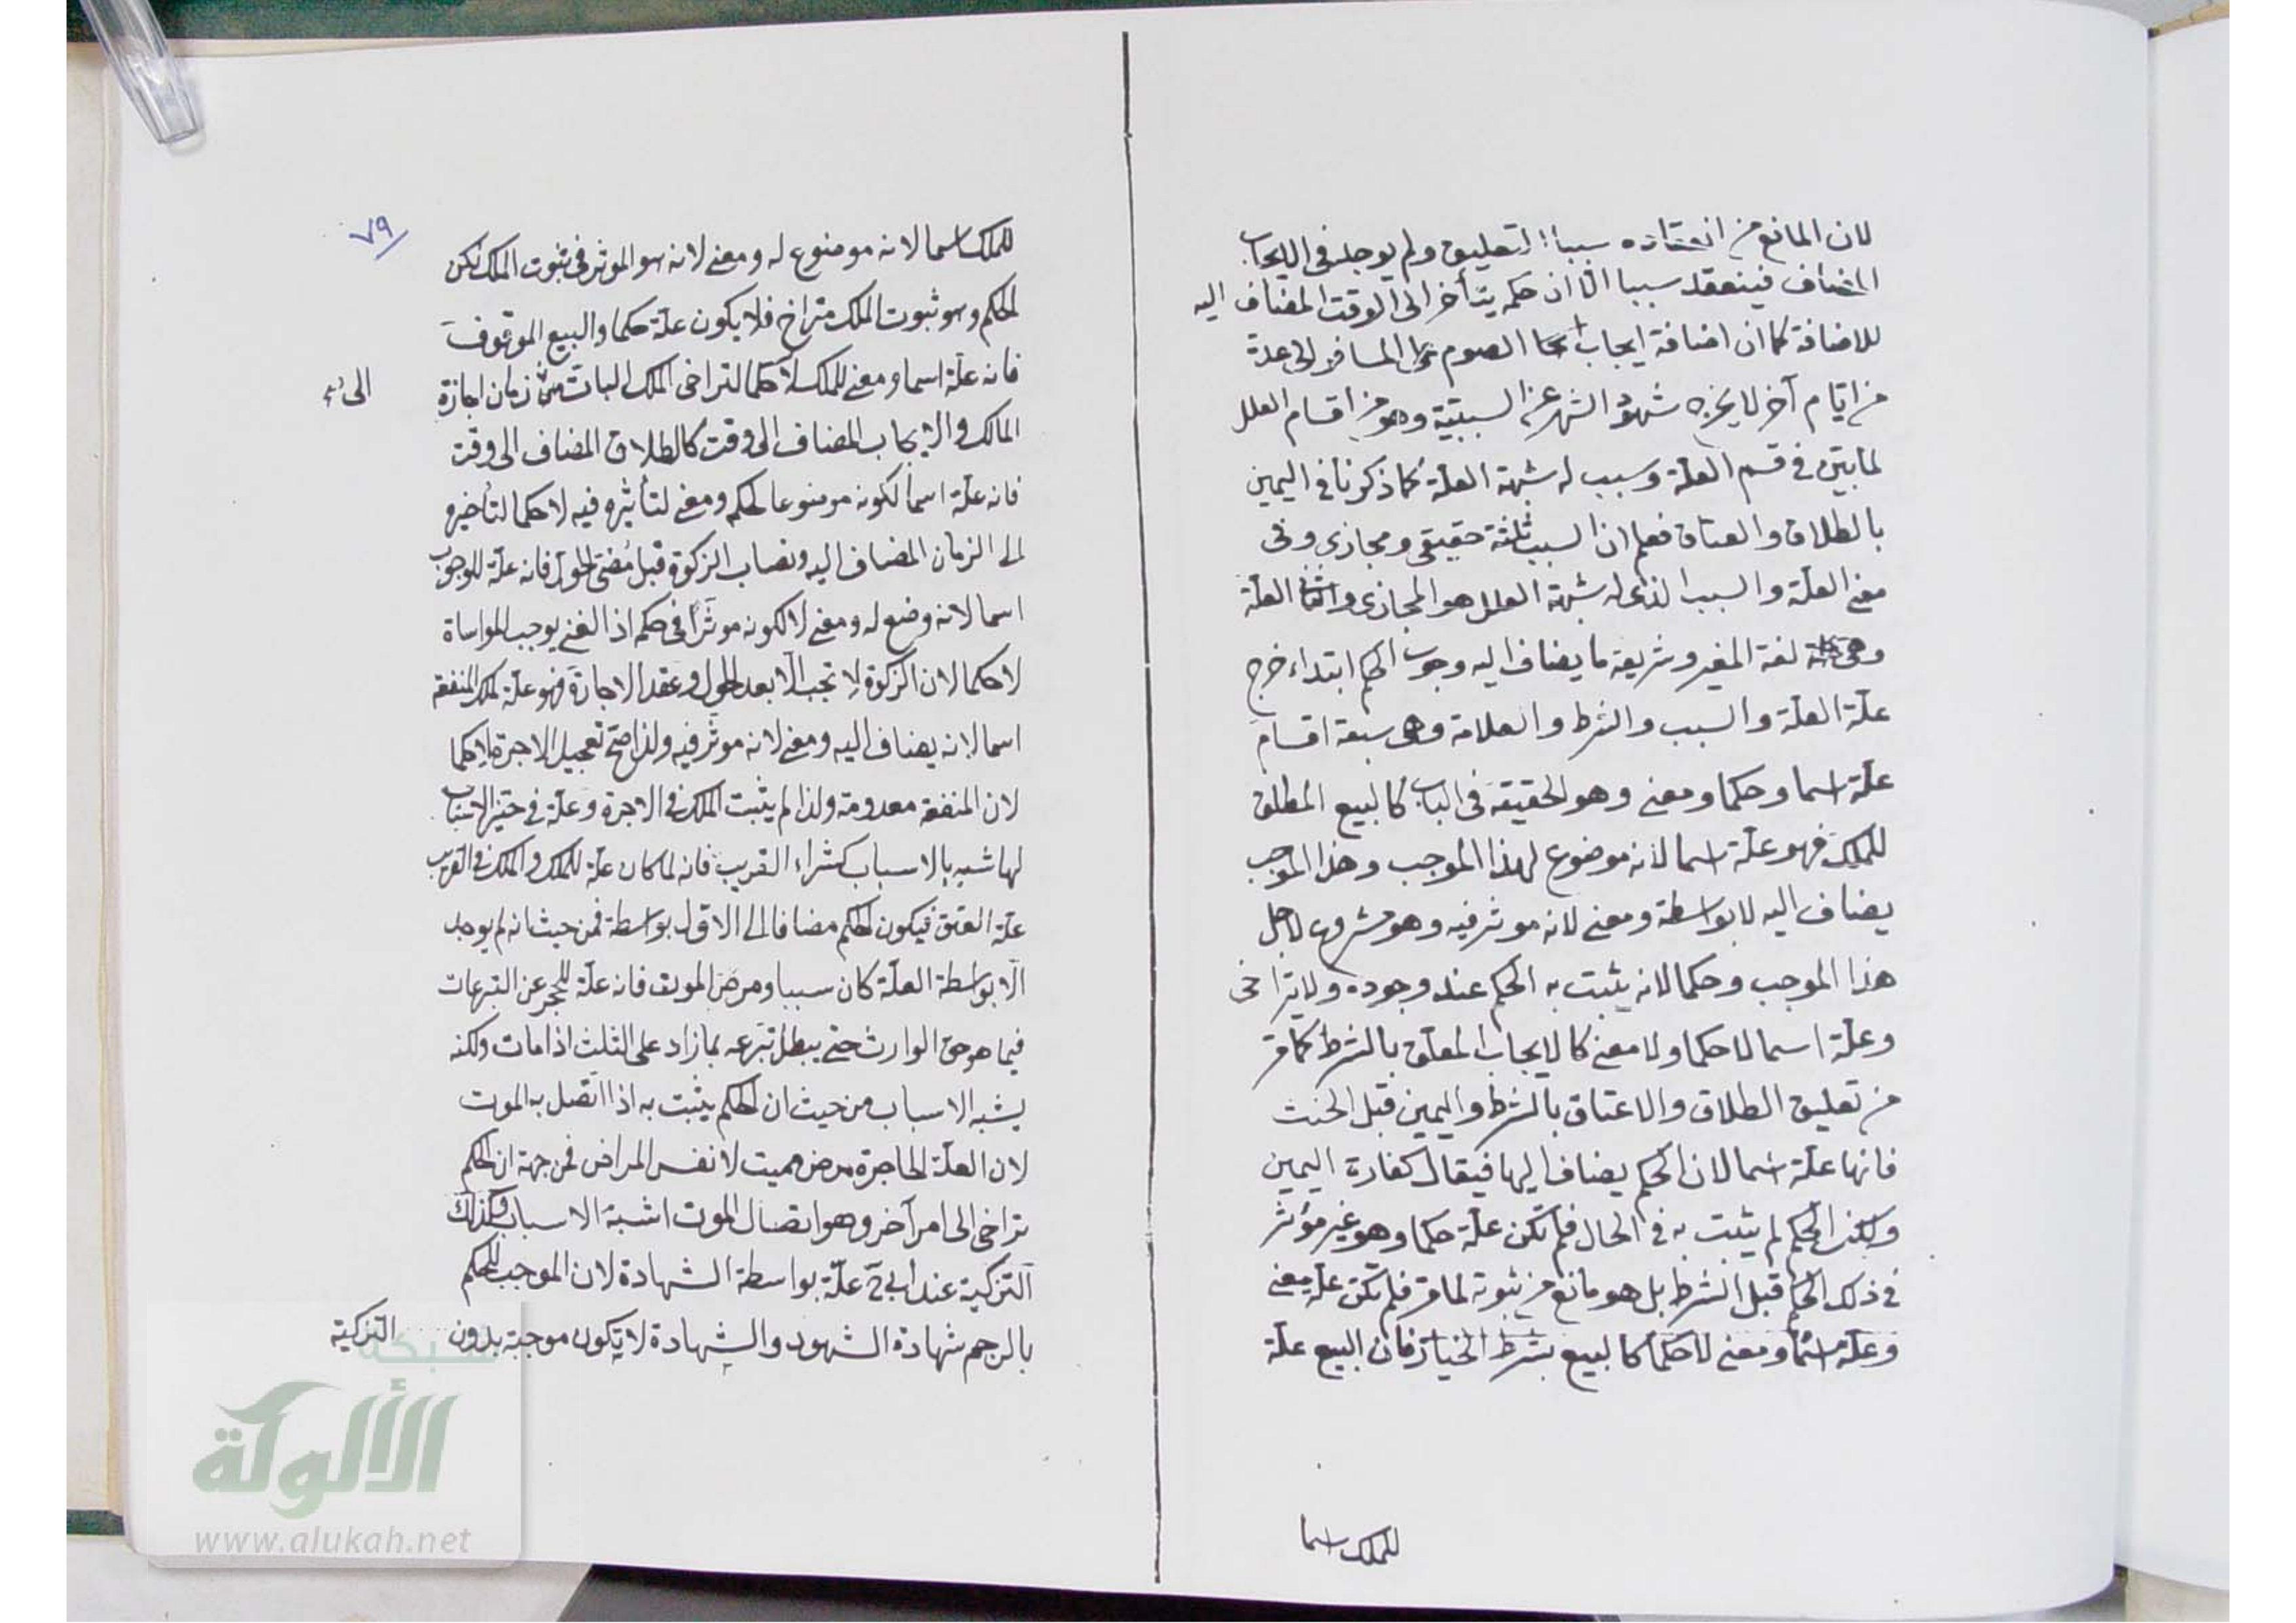 لان المانع من انعقاده سببا التعليق ولم يوجد في الايجاب
المضاف فينعقد سببا الّا ان حكمه يتأخر الى الوقت المضاف اليه
للاضافة كما ان اضافة ايجاب الصوم على المسافر الى عدة
من ايّام آخر لا يخرج شهود الشهر عن السببيّة وهو من اقسام العلل
لما يبيّن في قسم العلّة وسبب له شبهة العلّة كما ذكرنا في اليمين
بالطلاق والعتاق فعلم ان السبب ثلثة حقيقى ومجازى وفى
معنى العلّة والسبب الذى له شبهة العلل هو المجازى والثانى العلّة
وهى لغة المغير وشريعة ما يضاف اليه وجوب الحكم ابتداء خرج
علّة العلّة والسبب والشرط والعلامة وهى سبعة اقسام
علّة اسما وحكما ومعنى وهو الحقيقة فى الباب كالبيع المطلق
للملك فهو علّة اسما لانه موضوع لهذا الموجب وهذا الموجب
يضاف اليه لا بواسطة ومعنى لانه موثر فيه وهو مشروع لاجل
هذا الموجب وحكما لانه يثبت به الحكم عند وجوده ولا يتراخى
وعلّة اسما لا حكما ولا معنى كالايجاب المعلّق بالشرط كما مر
من تعليق الطلاق والاعتاق بالشرط واليمين قبل الحنث
فانها علّة اسما لان الحكم يضاف اليها فيقال كفارة اليمين
ولكن الحكم لم يثبت به فى الحال فلم تكن علّة حكما وهو غير مؤثر
فى ذلك الحكم قبل الشرط بل هو مانع من ثبوته لما مر فلم تكن علّة معنى
وعلّة اسما ومعنى لا حكما كالبيع بشرط الخيار فان البيع علّة
للملك اسما
٧٩
للملك اسما لانه موضوع له ومعنى لانه هو الموثر فى ثبوت الملك لكن
الحكم وهو ثبوت الملك متراخ فلا يكون علّة حكما والبيع الموقوف
فانه علّة اسما ومعنى للملك لا حكما لتراخى الملك البات من زمان اجازة
الى
المالك والايجاب المضاف الى وقت كالطلاق المضاف الى وقت
فانه علّة اسما لكونه موضوعا للحكم ومعنى لتأثيره فيه لا حكما لتأخيره
الى الزمان المضاف اليه ونصاب الزكوة قبل مضى الحول فانه علّة للوجوب
اسما لانه وضع له ومعنى لا لكونه موثرا فى حكمه اذ الغنى يوجب المواساة
لا حكما لان الزكوة لا تجب الّا بعد الحول وعقد الاجارة فهو علّة لملك المنفعة
اسما لانه يضاف اليه ومعنى لانه موثر فيه ولذا صحّ تعجيل الاجرة لا حكما
لان المنفعة معدومة ولذا لم يثبت الملك فى الاجرة وعلّة فى حيّز الاسباب
لها شبه بالاسباب كشراء القريب فانه لما كان علّة للملك والملك فى القريب
علّة العتق فيكون الحكم مضافا الى الاول بواسطة فمن حيث انه لم يوجد
الّا بواسطة العلّة كان سببا ومرض الموت فانه علّة للحجر عن التبرعات
فيما هو حق الوارث حتى يبطل تبرعه بما زاد على الثلث اذا مات ولكنه
يشبه الاسباب من حيث ان الحكم يثبت به اذا اتّصل به الموت
لان العلّة الحاجزة مرض مميت لا نفس المراض فمن جهة ان الحكم
تراخى الى امر آخر وهو اتصال الموت اشبة الاسباب وكذلك
التزكية عند ابى ح علّة بواسطة الشهادة لان الموجب للحكم
بالرجم شهادة الشهود والشهادة لا يكون موجبة بدون التزكية
شبكة
الألوكة
www.alukah.net